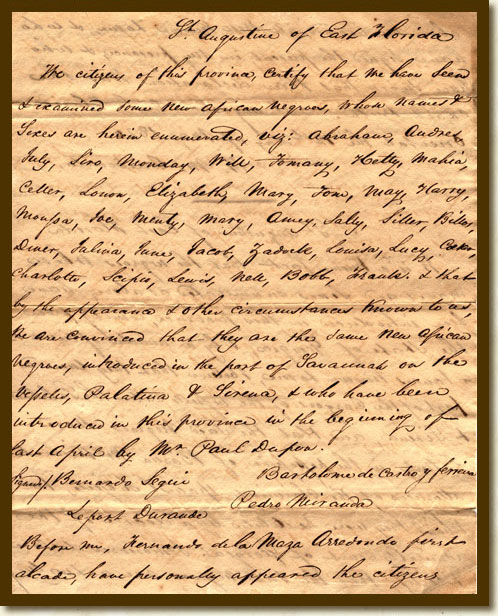 St. Augustine of East Florida
We citizens of this province, certify that we have seen
& examined some new African negroes, whose names &
Sexes are herein enumerated, viz: Abraham, Andres,
July, Siro, Monday, Will, Tomany, Hetty, Mahia
Celler, Lonon, Elizabeth, Mary, Tom, May, Harry,
Moussa, Joe, Menty, Mary, Amey, Sally, Siller, Biller,
Diner, Salina, June, Jacob, Zadock, Louisa, Lucy,
Charlotte, Scipio, Lewis, Nele, Bobb, Frank. & that
by the appearance & other circumstances known to us,
We are convinced that they are the same new African
negroes, introduced in the port of Savannah on the
Vessels, Palatina & Sirena, & who have been
introduced in this province in the beginning of
last April by Mr. Paul Dupon.
Signed/. Bernardo Segui Bartolome de Castro y Ferreira
Pedro Miranda
Before me, Fernando de la Maza Arredondo first
alcade, have personally appeared the citizens